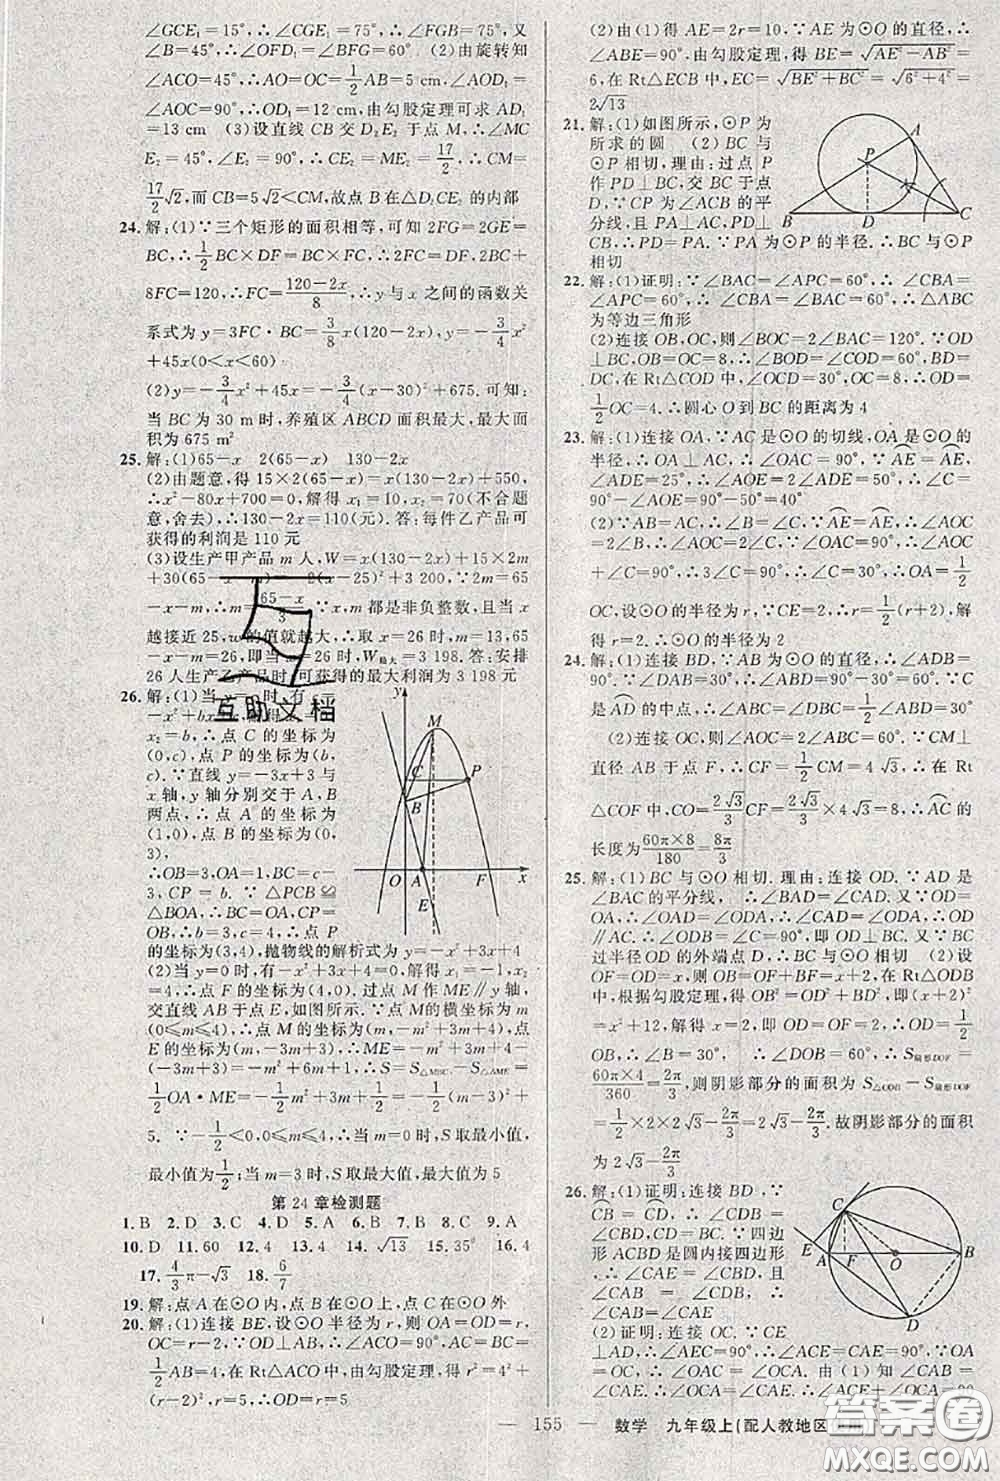 ∠GCE₁=75°,∴∠CGE₁=∠FGE₁=75°,又
∠B=45°,∴∠OFD₁=∠BFG=60° (2)由旋转知
∠ACO=45°,∴AC=1/2 AB=5 cm,∠AOD₁=
∠AOC=90°,∴OD₁=12 cm,由勾股定理可求 AD₁
=13 cm (3)设直线 CB 交 D₂E₂ 于点 M,∴∠MC
E₂=45°,∠E₂=90°,∴CE₂=ME₂=17/2,∴CM=
17/2 √2,而 CB=5√2<CM,故点 B 在△D₂CE₂ 的内部
24.解:(1)∵三个矩形的面积相等,可知 2FG=2GE=
BC,∴1/2 BC×DF=BC×FC,∴2FC=DF,2BC+
8FC=120,∴FC=(120-2x)/8,∴y 与 x 之间的函数关
系式为 y=3FC·BC=3/8 x(120-2x),即 y=-3/4 x²
+45x(0<x<60)
(2)y=-3/4 x²+45x=-3/4(x-30)²+675.可知:
当 BC 为 30 m 时,养殖区 ABCD 面积最大,最大面
积为 675 m²
25.解:(1)65-x 2(65-x) 130-2x
(2)由题意,得 15×2(65-x)=x(130-2x)+550,
∴x²-80x+700=0,解得 x₁=10,x₂=70(不合题
意,舍去),∴130-2x=110(元).答:每件乙产品可
获得的利润是 110 元
(3)设生产甲产品 m 人,W=x(130-2x)+15×2m
+30(65-x-m)=-2(x-25)²+3 200,∵2m=65
-x-m,∴m=(65-x)/3,∵x,m 都是非负整数,∴x
越接近 25,w的值就越大,∴取 x=26时,m=13,65
-x-m=26,即当 x=26时,W最大=3 198.答:安排
26 人生产乙产品时,可获得的最大利润为 3 198 元
26.解:(1)当 时,有 c=
x₂=b,∴点 C 的坐标为
(0,c),点 P 的坐标为
(b,c).∵直线 y=-3x+3与 x
轴,y轴分别交于 A,B
两点,∴点 A 的坐标为
(1,0),点 B 的坐标为(0,
3),
∴OB=3,OA=1,BC=c-
3,CP=b.∵△PCB≌
△BOA,∴BC=OA,CP=
OB,∴b=3,c=4,∴点 P
的坐标为(3,4),抛物线的解析式为 y=-x²+3x+4
(2)当 y=0 时,有-x²+3x+4=0,解得 x₁=-1,x₂
=4,∴点 F 的坐标为(4,0).过点 M 作 ME∥y 轴,
交直线 AB 于点 E,如图所示.∵点 M的横坐标为 m
(0≤m≤4),∴点 M 的坐标为(m,-m²+3m+4),点
E 的坐标为(m,-3m+3),∴ME=-m²+3m+4-
(-3m+3)=-m²+6m+1,∴S=
1/2 OA·ME=-1/2 m²+3m+1/2=-1/2(m-3)²+
5.∵-1/2<0,0≤m≤4,∴当 m=0 时,S 取最小值,
最小值为1/2;当 m=3 时,S 取最大值,最大值为 5
第 24 章检测题
1.B 2.D 3.C 4.D 5.A 6.B 7.C 8.C 9.A
10.D 11.60 12.4 13.4 14.√13 15.35° 16.4
17.4/3 π-√3 18.6/7
19.解:点 A 在⊙O 内,点 B 在⊙O 上,点 C 在⊙O 外
20.解:(1)连接 BE,设⊙O 半径为 r,则 OA=OD=r,
OC=r-2,∵OD⊥AB,∴∠ACO=90°,AC=BC=
1/2 AB=4,在 Rt△ACO 中,由勾股定理,得 r²=4²+
(r-2)²,∴r=5,∴OD=r=5
(2)由(1)可知 AE=2r=10,∵AE 为⊙O 的直径,∴
∠ABE=90°,由勾股定理,得 BE=√(AE²-AB²)=
6,在 Rt△ECB 中,EC=√(BE²+BC²)=√(6²+4²)=
2√13
21.解:(1)如图所示,⊙P 为
所求的圆 (2)BC 与
⊙P 相切,理由:过点 P
作 PD⊥BC,交 BC 于点
D,∵CP 为∠ACB 的平
分线,且 PA⊥AC,PD⊥
CB,∴PD=PA.∵PA 为⊙P 的半径.∴BC 与⊙P
相切
22.解:(1)证明:∵∠BAC=∠APC=60°,∴∠CBA=
∠APC=60°,∴∠CBA=∠BAC=60°,∴△ABC
为等边三角形
(2)连接 OB,OC,则∠BOC=2∠BAC=120°.∵OD
⊥BC,OB=OC=8,∴∠BOD=∠COD=60°,BD=
DC,在 Rt△CDO 中,∠OCD=30°,OC=8,∴OD=
1/2 OC=4.∴圆心 O 到 BC 的距离为 4
23.解:(1)连接 OA,∵AC 是⊙O 的切线,OA 是⊙O 的
半径,∴OA⊥AC,∴∠OAC=90°,∵AE=AE,
∠ADE=25°,∴∠AOE=2∠ADE=50°,∴∠C=90°
-∠AOE=90°-50°=40°
(2)∵AB=AC,∴∠B=∠C,∵AE=AE,∴∠AOC=
2∠B,∴∠AOC=2∠C,∵∠OAC=90°,∴∠AOC+
∠C=90°,∴3∠C=90°,∴∠C=30°,∴OA=1/2
OC,设⊙O 的半径为 r,∵CE=2,∴r=1/2(r+2),解
得 r=2.∴⊙O 的半径为 2
24.解:(1)连接 BD,∵AB 为⊙O 的直径,∴∠ADB=
90°.∵∠BAD=60°,∴∠ABD=90°-60°=30°.∵C
是AD 的中点,∴∠ABC=∠DBC=1/2∠ABD=30°
(2)连接 OC,则∠AOC=2∠ABC=60°.∵CM⊥
直径 AB 于点 F,∴CF=1/2 CM=4√3.∴在 Rt
△COF 中,CO=(2√3)/3 CF=(2√3)/3×4√3=8,∴AC 的
长度为(60π×8)/180=8π/3
25.解:(1)BC 与⊙O 相切.理由:连接 OD.∵AD 是
∠BAC 的平分线,∴∠BAD=∠CAD.又∵OD=
OA,∴∠OAD=∠ODA.∴∠CAD=∠ODA.∴OD
∥AC.∴∠ODB=∠C=90°,即 OD⊥BC.又∵BC
过半径 OD 的外端点 D,∴BC 与⊙O 相切 (2)设
OF=OD=x,则 OB=OF+BF=x+2,在 Rt△ODB
中,根据勾股定理,得 OB²=OD²+BD²,即(x+2)²=
x²+12,解得 x=2,即 OD=OF=2,∴OB=2+2=4,∵在 Rt△ODB 中,OD=1/2
OB,∴∠B=30° ∴∠DOB=60°,∴S扇形DOF=
(60π×4)/360=2π/3,则阴影部分的面积为 S△ODB-S扇形DOF
=1/2×2×2√3-2π/3=2√3-2π/3.故阴影部分的面积
为 2√3-2π/3
26.解:(1)证明:连接 BD,∵
CB=CD,∴∠CDB=
∠CBD,∵四边
形 ACBD 是圆内接四边形
,∴∠CAE=∠CDB,
∴∠CAB=∠CAE
(2)证明:连接 OC.∵CE
⊥AD,∴∠AEC=90°,∴∠ACE+∠CAE=90°.∵
OA=OC,∴∠OAC=∠OCA.由(1)知∠CAB=
∠CAE,∴∠OCA=∠CAE,∴∠OCA+∠ACE=90
A B C D P
y x O A B C E F M P
A B C D E F O
互助文档
— 155 — 数学 九年级上(配人教地区
答案圈
MXQE.COM